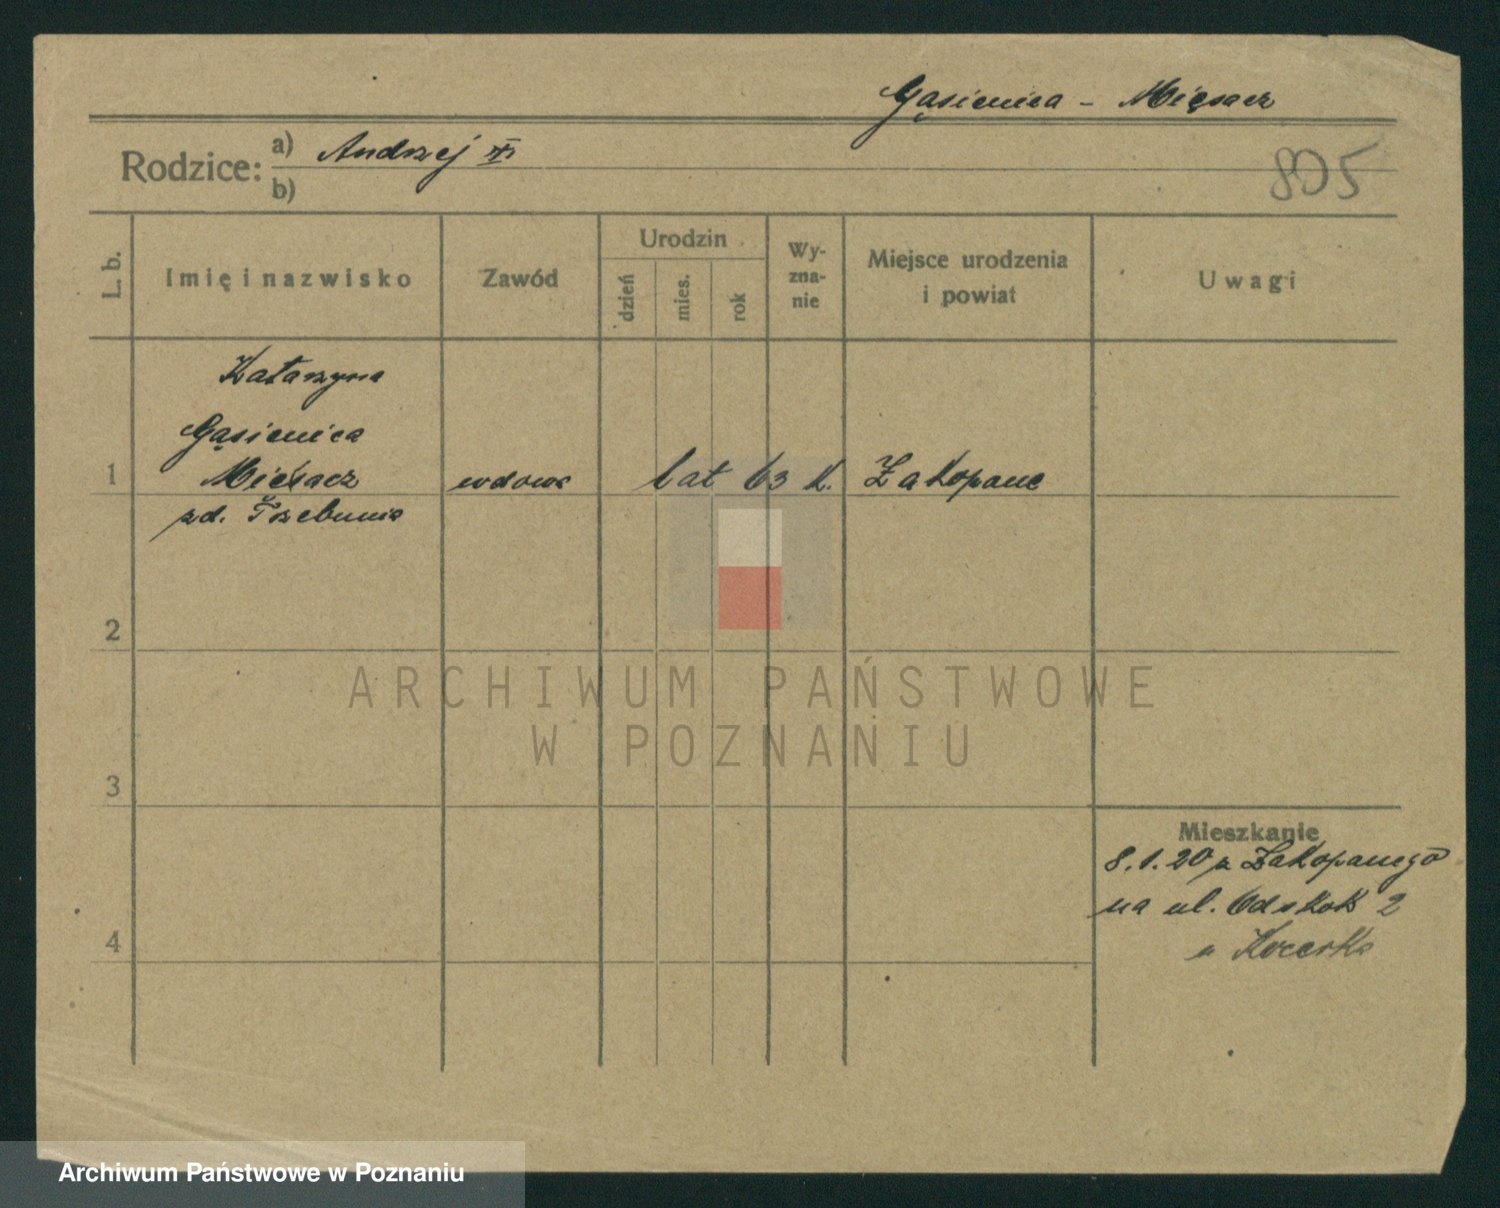 Gąsienica - Mięsacz
Rodzice:
a) Andrzej
b)
805
L. b.
Imię i nazwisko
Zawód
Urodzin
dzień
mies.
rok
Wy-
zna-
nie
Miejsce urodzenia
i powiat
Uwagi
Katarzyna
Gąsienica
1 Mięsacz wdowa lat 63 K. Zakopane
zd. Trzebunia
2
3
4
Mieszkanie
8.1.20 z Zakopanego
na ul. Odskok 2
ARCHIWUM PAŃSTWOWE
W POZNANIU
Archiwum Państwowe w Poznaniu